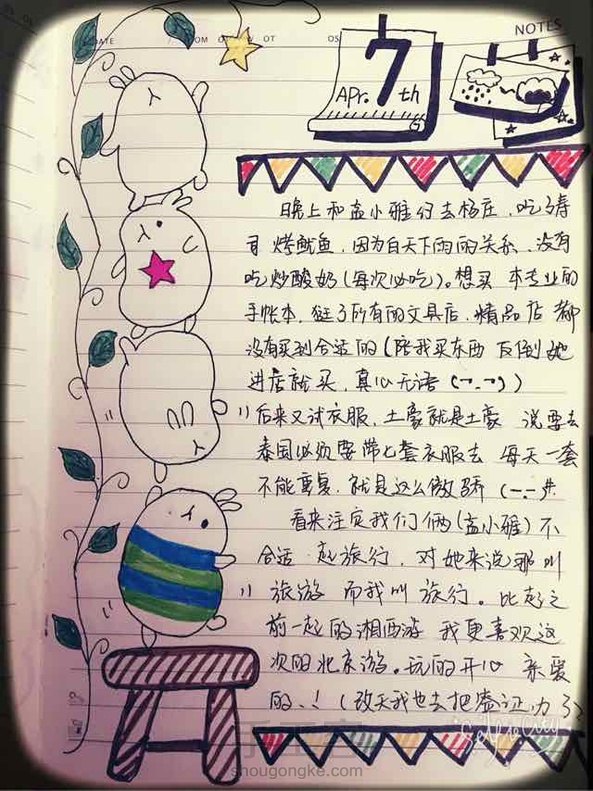 NOTES
DATE
Apr. 7 th
晚上和孟小雅仔去杨庄，吃了寿
司 烤鱿鱼，因为白天下雨的关系，没有
吃炒酸奶（每次必吃）。想买 本专业的
手帐本，逛了所有的文具店、精品店 都
没有买到合适的（陪我买东西 反倒她
进店就买，真心无语（¬.¬））
后来又试衣服，土豪就是土豪 说要去
泰国必须要带七套衣服去 每天一套
不能重复，就是这么傲骄（-.-）#.
看来注定我们俩（孟小雅）不
合适一起旅行，对她来说那叫
旅游 而我叫 旅行。比起之
前一起的湘西游 我更喜欢这
次的北京游。玩的开心 亲爱
的..！（改天我也去把签证办了
shougongke.com